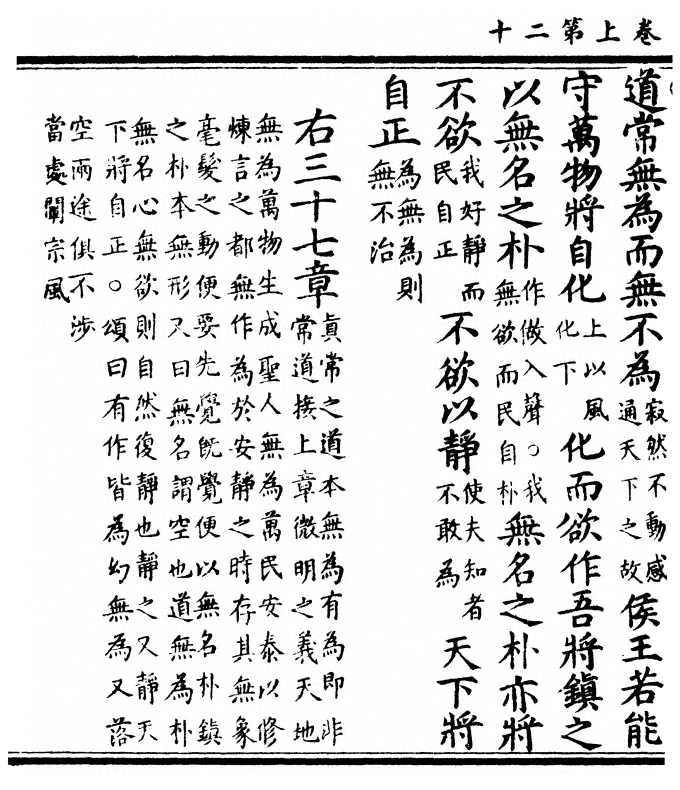 卷上第二十
道常無為而無不為寂然不動感通天下之故侯王若能
守萬物將自化上以風化下化而欲作吾將鎮之
以無名之朴作做入聲○我無欲而民自朴無名之朴亦將
不欲我好靜而民自正不欲以靜使夫知者不敢為天下將
自正為無為則無不治
右三十七章眞常之道本無為有為即非常道接上章微明之義天地
無為萬物生成聖人無為萬民安泰以修
煉言之都無作為於安靜之時存其無象
毫髮之動便要先覺旣覺便以無名朴鎮
之朴本無形又曰無名謂空也道無為朴
無名心無欲則自然復靜也靜之又靜天
下將自正○頌曰有作皆為幻無為又落
空兩途俱不涉
當處闡宗風